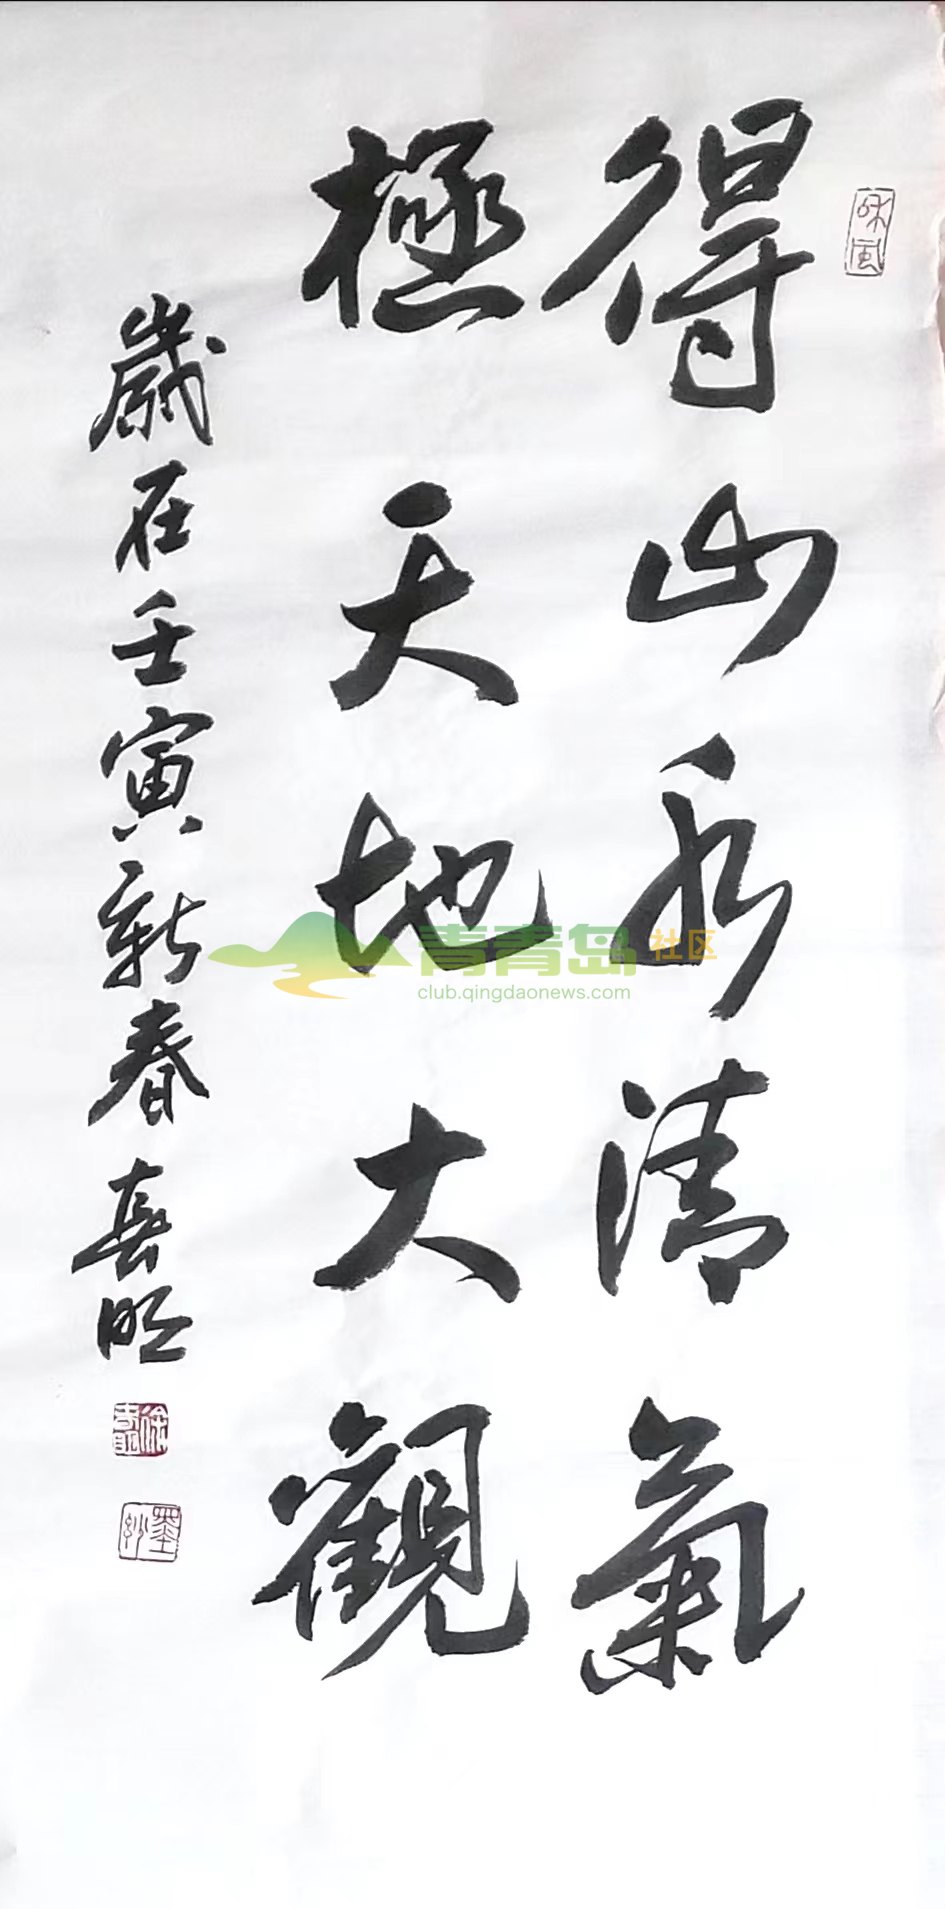 得山水清氣
極天地大觀
歲在壬寅新春 喜明
和風
青青岛社区
club.qingdaonews.com